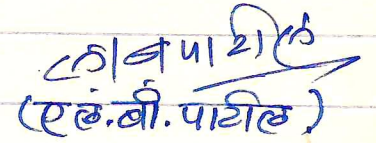 लाबपाटील
(एल.बी. पाटील)